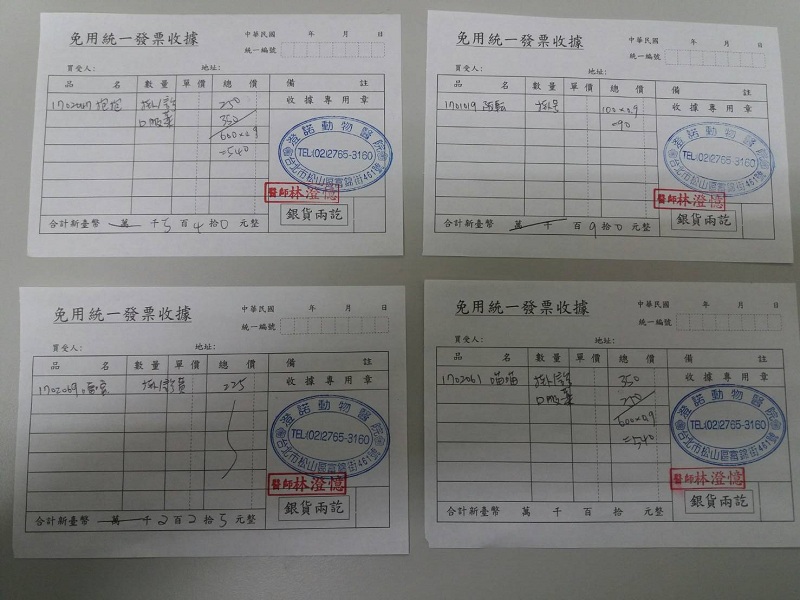 免用統一發票收據
中華民國 年 月 日
統一編號
買受人: 地址:
品 名 數量 單價 總 價 備 註
1702067 抱抱 掛/診 250 收據專用章
口服藥 350
600×0.9
=540
澄諾動物醫院
TEL(02)2765-3160
台北市松山區富錦街461號
醫師林澄憶
銀貨兩訖
合計新臺幣 萬 千 5 百 4 拾 0 元整
免用統一發票收據
中華民國 年 月 日
統一編號
買受人: 地址:
品 名 數量 單價 總 價 備 註
1701019 掛号 100×0.9 收據專用章
=90
澄諾動物醫院
TEL(02)2765-3160
台北市松山區富錦街461號
醫師林澄憶
銀貨兩訖
合計新臺幣 萬 千 百 9 拾 0 元整
免用統一發票收據
中華民國 年 月 日
統一編號
買受人: 地址:
品 名 數量 單價 總 價 備 註
1702069 225 收據專用章
澄諾動物醫院
TEL(02)2765-3160
台北市松山區富錦街461號
醫師林澄憶
銀貨兩訖
合計新臺幣 萬 千 2 百 2 拾 5 元整
免用統一發票收據
中華民國 年 月 日
統一編號
買受人: 地址:
品 名 數量 單價 總 價 備 註
1702061 喵喵 掛/診 350 收據專用章
口服藥 250
600×0.9
=540
澄諾動物醫院
TEL(02)2765-3160
台北市松山區富錦街461號
醫師林澄憶
銀貨兩訖
合計新臺幣 萬 千 百 拾 元整